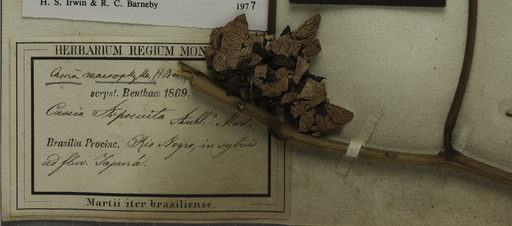 H. S. Irwin & R. C. Barneby 1977
HERBARIUM REGIUM MON
Cassia macrophylla
scrpst. Bentham 1869.
Cassia Apoucouita Aubl. Mart.
Brasilia Provinc. Rio Negro, in sylvis
ad fluv. Japurá.
Martii iter brasiliense.